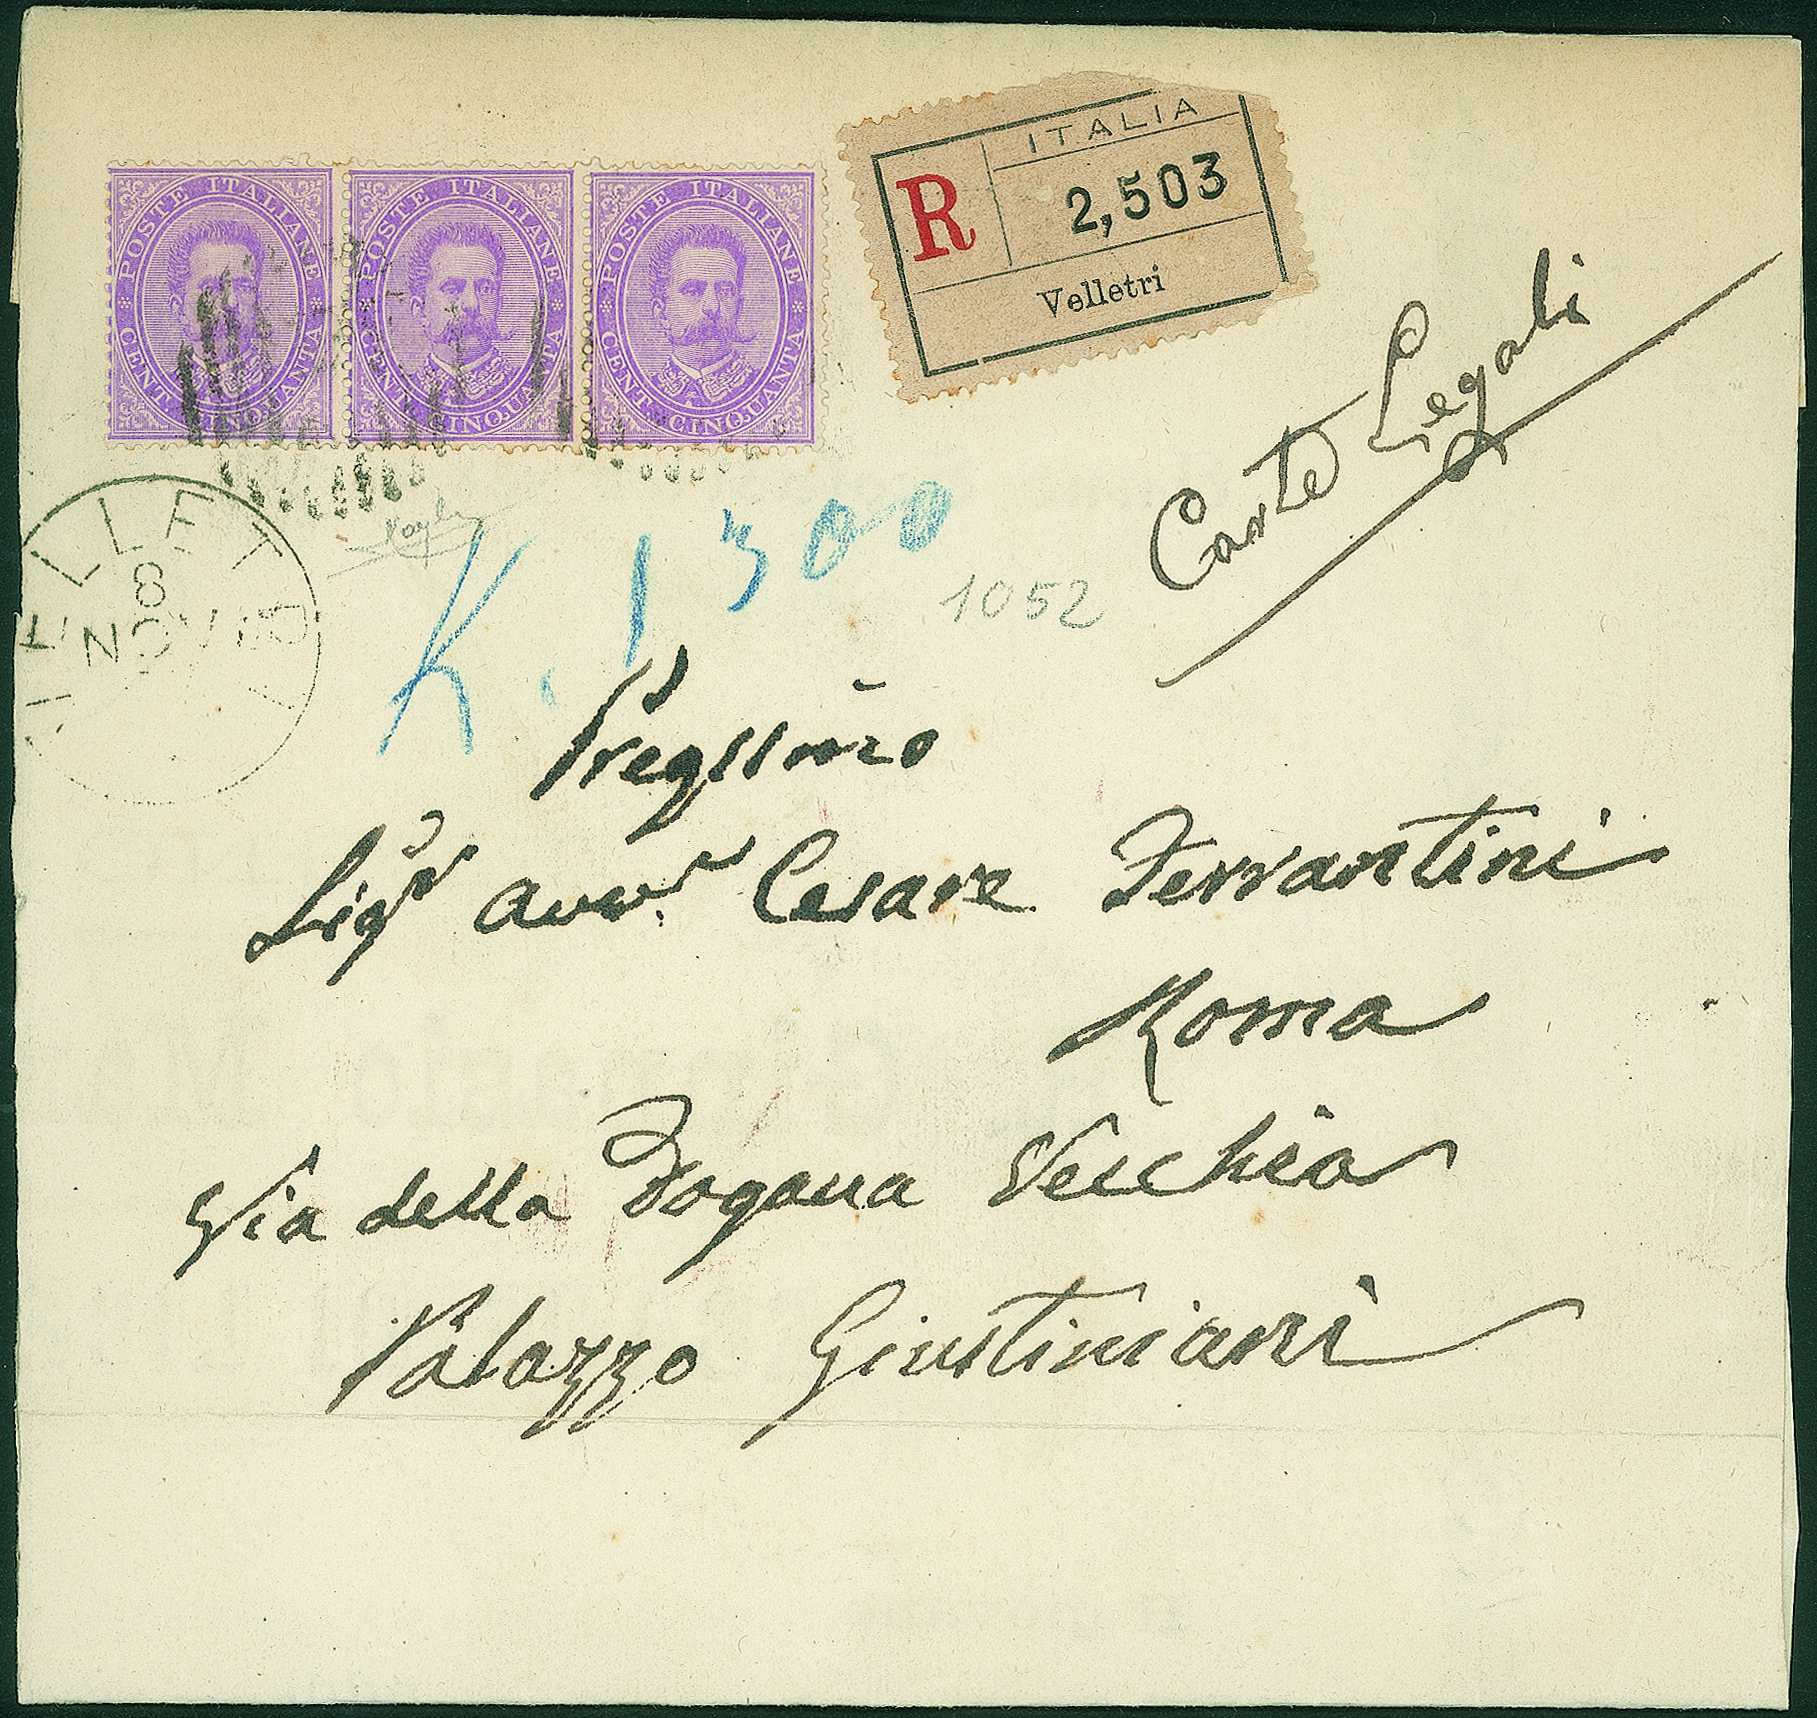 POSTE ITALIANE
CENT. CINQUANTA
POSTE ITALIANE
CENT. CINQUANTA
POSTE ITALIANE
CENT. CINQUANTA
R
ITALIA
2,503
Velletri
Carte Legali
8
NOV
K. 1300
1052
Pregiimo
Sigr Avvr. Cesare Ferrantini
Roma
Via della Dogana Vecchia
Palazzo Giustiniani